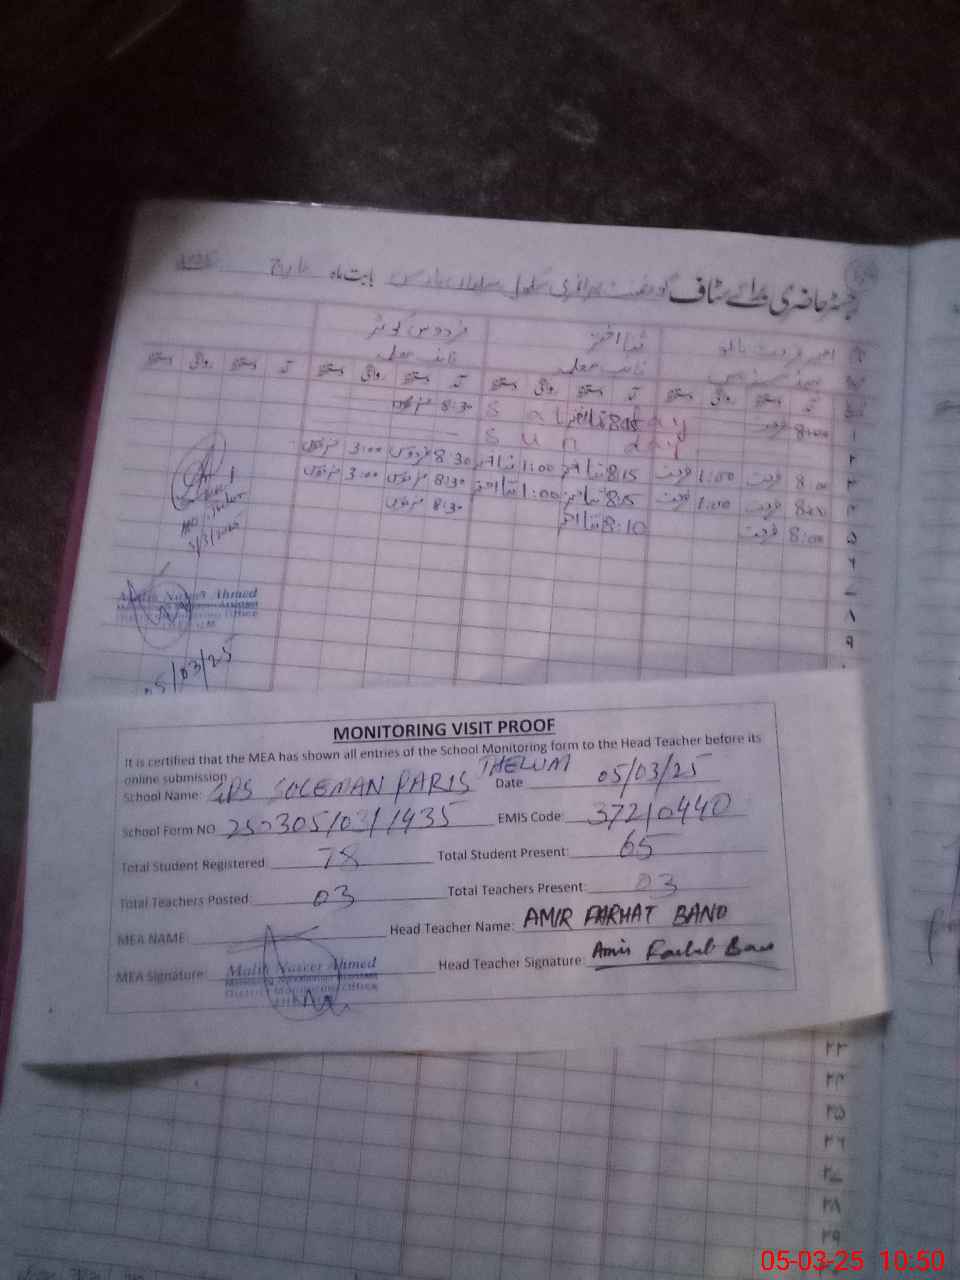 رجسٹر حاضری برائے سٹاف گورنمنٹ پرائمری سکول سلیمان پارس بابت ماہ مارچ
ثنا اختر
آمد دستخط روانگی دستخط آمد دستخط روانگی دستخط آمد دستخط روانگی دستخط آمد دستخط روانگی دستخط
۱ 8:00 فرحت Saturday 8:30
۲ Sunday
۳ 8:00 فرحت 1:00 فرحت 8:15 ثنا اختر 1:00 ثنا اختر 8:30 فردوس 3:00 فردوس
۴ 8:00 فرحت 1:00 فرحت 8:15 ثنا اختر 1:00 ثنا اختر 8:30 فردوس 3:00 فردوس
۵ 8:00 فرحت 8:10 ثنا اختر 8:30 فردوس
۶
۷
۸
۹
5/3/2025
Malik Naseer Ahmed
05/03/25
MONITORING VISIT PROOF
It is certified that the MEA has shown all entries of the School Monitoring form to the Head Teacher before its
online submission
School Name: GPS SULEMAN PARIS JHELUM Date 05/03/25
School Form NO 250305/03/1435 EMIS Code: 37210440
Total Student Registered: 78 Total Student Present: 65
Total Teachers Posted: 03 Total Teachers Present: 03
MEA NAME: Head Teacher Name: AMIR FARHAT BANO
MEA Signature: Malik Naseer Ahmed Head Teacher Signature: Amir Farhat Bano
District Monitoring Office
۲۳
۲۴
۲۵
۲۶
۲۷
۲۸
۲۹
05-03-25 10:50